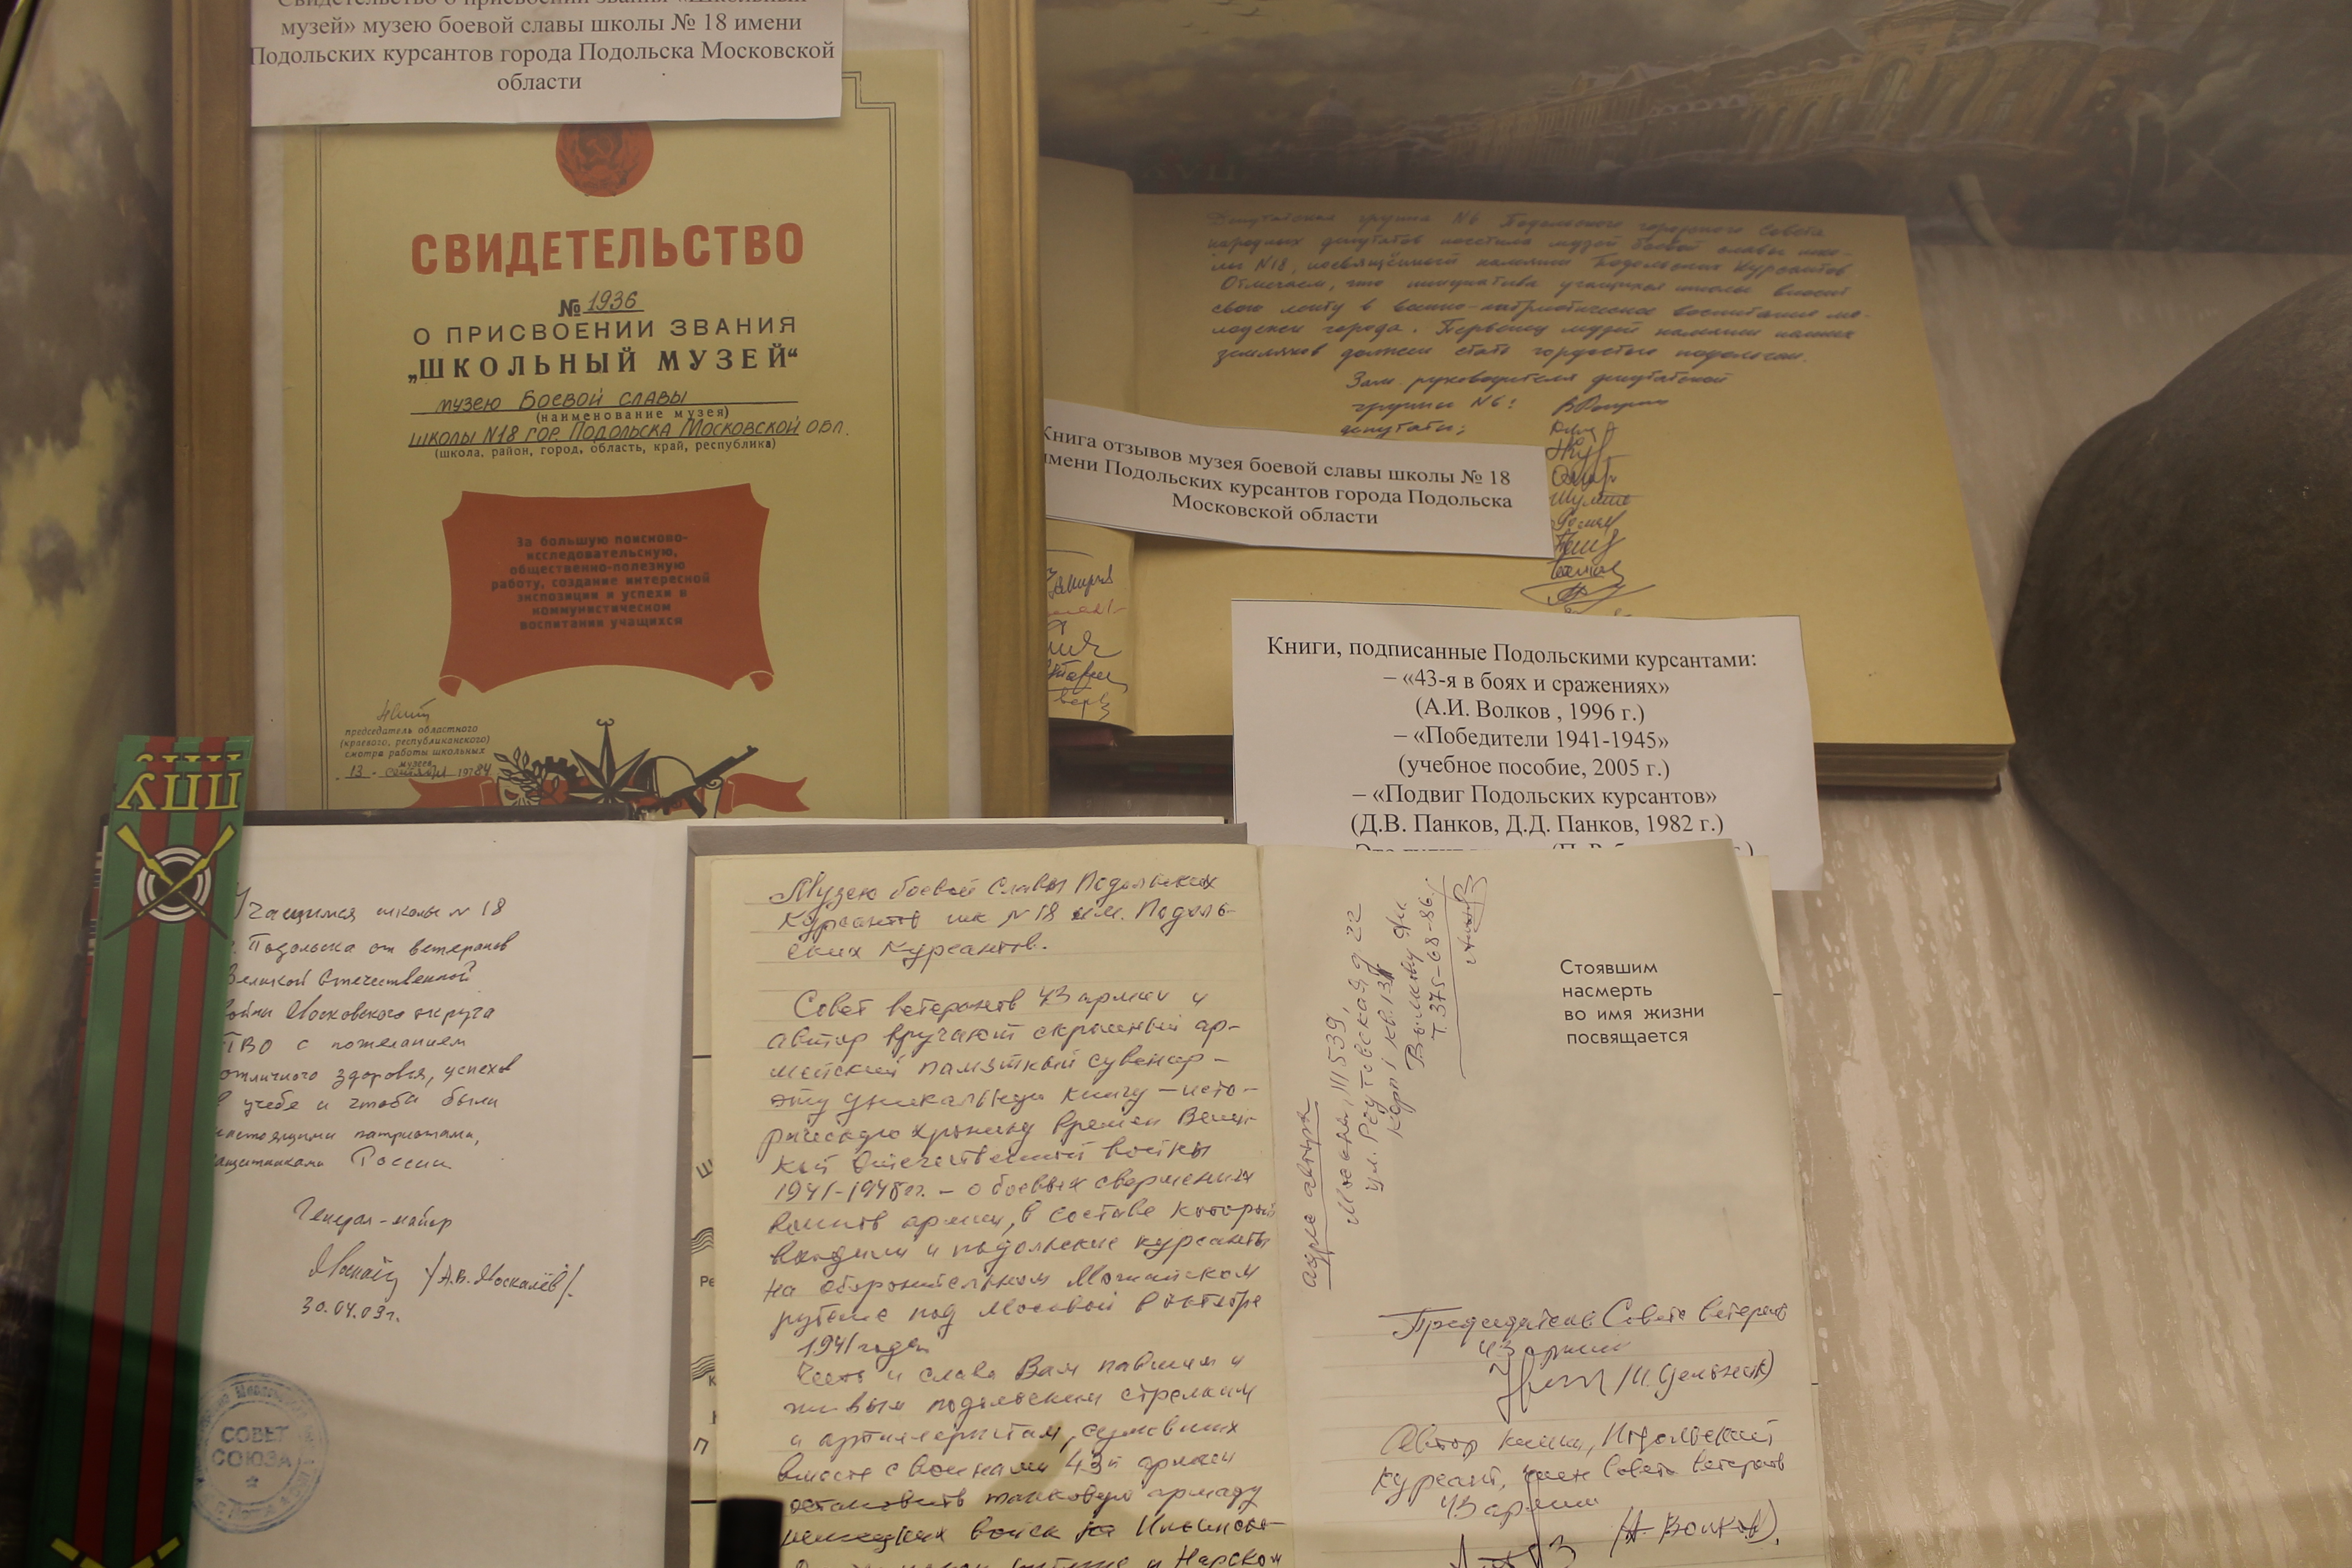 Свидетельство о присвоении звания «Школьный
музей» музею боевой славы школы № 18 имени
Подольских курсантов города Подольска Московской
области
СВИДЕТЕЛЬСТВО
№ 1936
О ПРИСВОЕНИИ ЗВАНИЯ
„ШКОЛЬНЫЙ МУЗЕЙ“
музею боевой славы
(наименование музея)
школы N18 гор. Подольска Московской обл.
(школа, район, город, область, край, республика)
За большую поисково-
исследовательскую,
общественно-полезную
работу, создание интересной
экспозиции и успехи в
коммунистическом
воспитании учащихся
председатель областного
(краевого, республиканского)
смотра работы школьных
музеев
13 сентября 1984
Депутатская группа N6 Подольского городского Совета
народных депутатов посетила музей боевой славы шко-
лы N18, посвящённый памяти Подольских Курсантов
Отмечаем, что инициатива учащихся школы вносит
свою лепту в военно-патриотическое воспитание мо-
лодежи города. Первенец музей памяти наших
земляков должен стать гордостью подольчан.
Зам. руководителя депутатской
группы N6:
депутаты:
Книга отзывов музея боевой славы школы № 18
имени Подольских курсантов города Подольска
Московской области
Книги, подписанные Подольскими курсантами:
– «43-я в боях и сражениях»
(А.И. Волков , 1996 г.)
– «Победители 1941-1945»
(учебное пособие, 2005 г.)
– «Подвиг Подольских курсантов»
(Д.В. Панков, Д.Д. Панков, 1982 г.)
ППУ
Учащимся школы N 18
г. Подольска от ветеранов
Великой Отечественной
войны Московского округа
ПВО с пожеланием
отличного здоровья, успехов
в учебе и чтобы были
настоящими патриотами,
защитниками России
Генерал-майор
/А.В. Москалёв/.
30.04.03г.
СОВЕТ
СОЮЗА
Музею боевой Славы Подольских
Курсантов шк N18 им. Подоль-
ских Курсантов.
Совет ветеранов 43 армии и
автор вручают скромный ар-
мейский памятный сувенир –
эту уникальную книгу – исто-
рическую хронику времен Вели-
кой Отечественной войны
1941-1945 гг. – о боевых свершениях
воинов армии, в составе которой
входили и подольские курсанты
на оборонительном Можайском
рубеже под Москвой в октябре
1941 года
Честь и слава Вам павшим и
живым подольским стрелкам
и артиллеристам, сумевших
вместе с воинами 43й армии
остановить танковую армаду
немецких войск на Ильинско-
и Нарском
адрес автора
Москва, 111539,
ул. Реутовская д 22
корп 1 кв.13
Волкову А.И.
т. 375-68-86
Стоявшим
насмерть
во имя жизни
посвящается
Председатель Совета ветеранов
43 армии
Автор книги, Подольский
курсант, член Совета ветеранов
43 армии
(А. Волков).